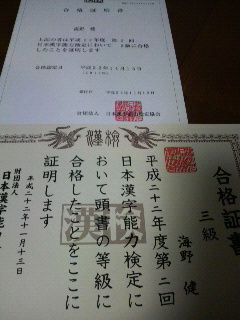 合格証明書
海野 健
上記の者は平成22年度 第2回
日本漢字能力検定において 3級に合格
したことを証明します
財団法人 日本漢字能力検定協会
漢検
合格証書
三級
海野 健
平成二十二年度第二回
日本漢字能力検定に
おいて頭書の等級に
合格したことをここに
証明します
平成二十二年十一月十三日
財団法人
日本漢字能